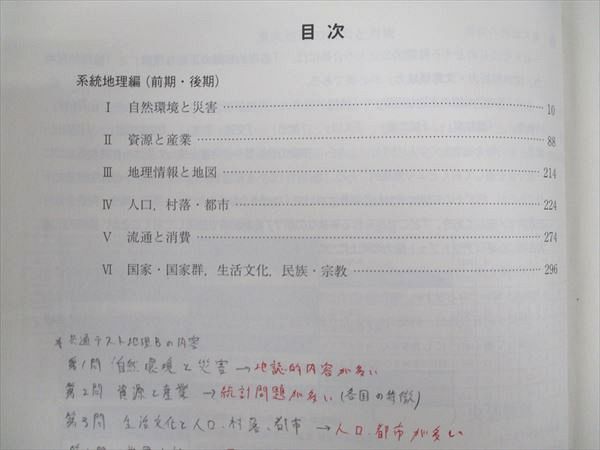 目次
系統地理編（前期・後期）
Ⅰ 自然環境と災害……………………………10
Ⅱ 資源と産業……………………………88
Ⅲ 地理情報と地図……………………………214
Ⅳ 人口，村落・都市……………………………224
Ⅴ 流通と消費……………………………274
Ⅵ 国家・国家群，生活文化，民族・宗教……………………………296
* 共通テスト地理Bの内容
第1問 自然環境と災害 → 地誌的内容が多い
第2問 資源と産業 → 統計問題が多い (各国の特徴)
第3問 生活文化と人口、村落、都市 → 人口、都市が多い